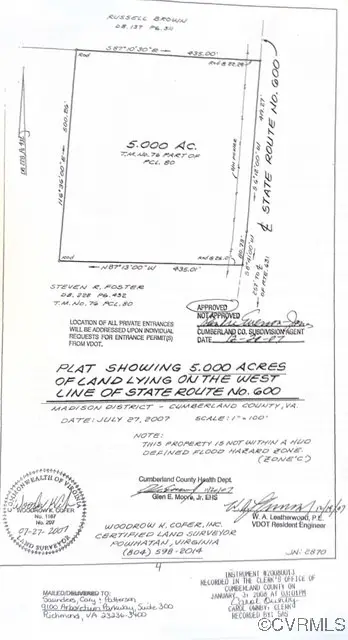 RUSSELL BROWN
S 87°10'30" E
435.00'
Rod
5.000 AC.
T.M. No. 76 PART OF
PCL. 80
STATE ROUTE No. 600
Rod
N 87°13'00" W
435.01'
STEVEN R. FOSTER
D.B. 228 PG. 452
T.M. No. 76 PCL. 80
APPROVED
NOT APPROVED
CUMBERLAND CO. SUBDIVISION AGENT
DATE
LOCATION OF ALL PRIVATE ENTRANCES
WILL BE ADDRESSED UPON INDIVIDUAL
REQUESTS FOR ENTRANCE PERMIT(S)
FROM VDOT.
PLAT SHOWING 5.000 ACRES
OF LAND LYING ON THE WEST
LINE OF STATE ROUTE No. 600
MADISON DISTRICT - CUMBERLAND COUNTY, VA.
DATE: JULY 27, 2007
SCALE: 1"=100'
NOTE:
THIS PROPERTY IS NOT WITHIN A HUD
DEFINED FLOOD HAZARD ZONE.
(ZONE "C")
Cumberland County Health Dept.
Glen E. Moore, Jr. EHS
W. A. Leatherwood, P.E.
VDOT Resident Engineer
COMMONWEALTH OF VIRGINIA
WOODROW K. COFER, INC.
07-27-2007
LAND SURVEYOR
WOODROW K. COFER, INC.
CERTIFIED LAND SURVEYOR
POWHATAN, VIRGINIA
(804) 598-2014
JN: 2870
RECORDED IN THE CLERK'S OFFICE OF
CUMBERLAND COUNTY ON
MAILED/DELIVERED TO:
Saunders, Cary & Patterson
9100 Arboretum Parkway, Suite 300
Richmond, VA 23236-3400
CVRMLS